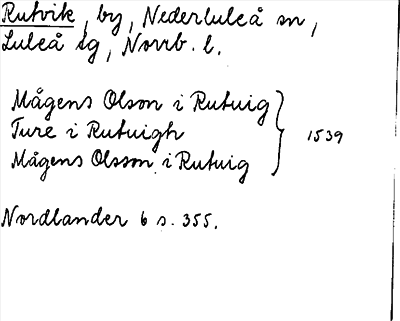 Rutvik, by, Nederluleå sn,
Luleå tg, Norrb. l.
Mågens Olson i Rutuig
Ture i Rutuigh
Mågens Olsson i Rutuig
1539
Nordlander 6 s. 355.